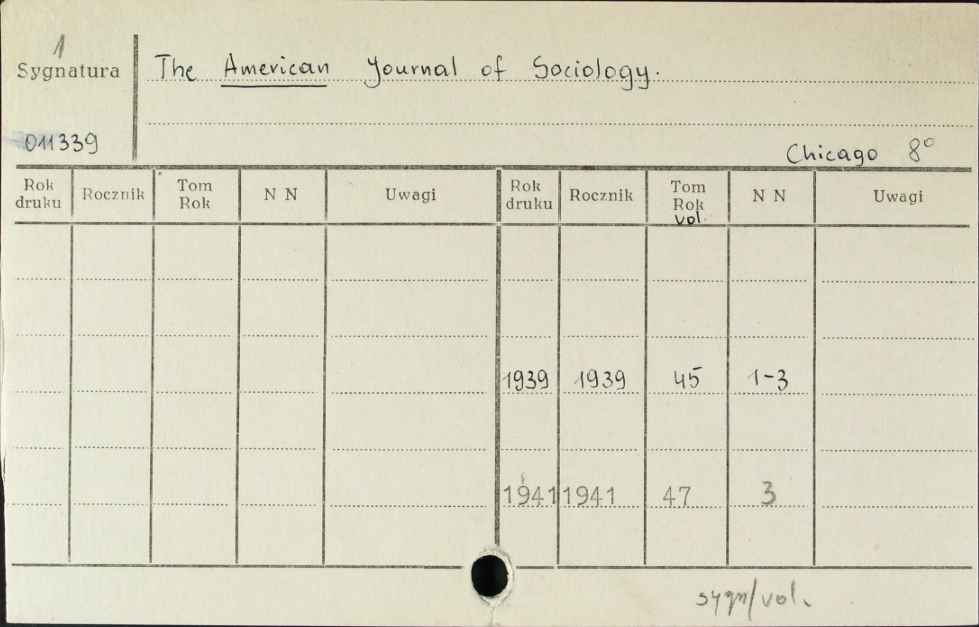 1
Sygnatura
The American Journal of Sociology.
011339
Chicago 8°
Rok druku Rocznik Tom Rok N N Uwagi Rok druku Rocznik Tom Rok vol. N N Uwagi
1939 1939 45 1-3
1941 1941 47 3
sygn/vol.